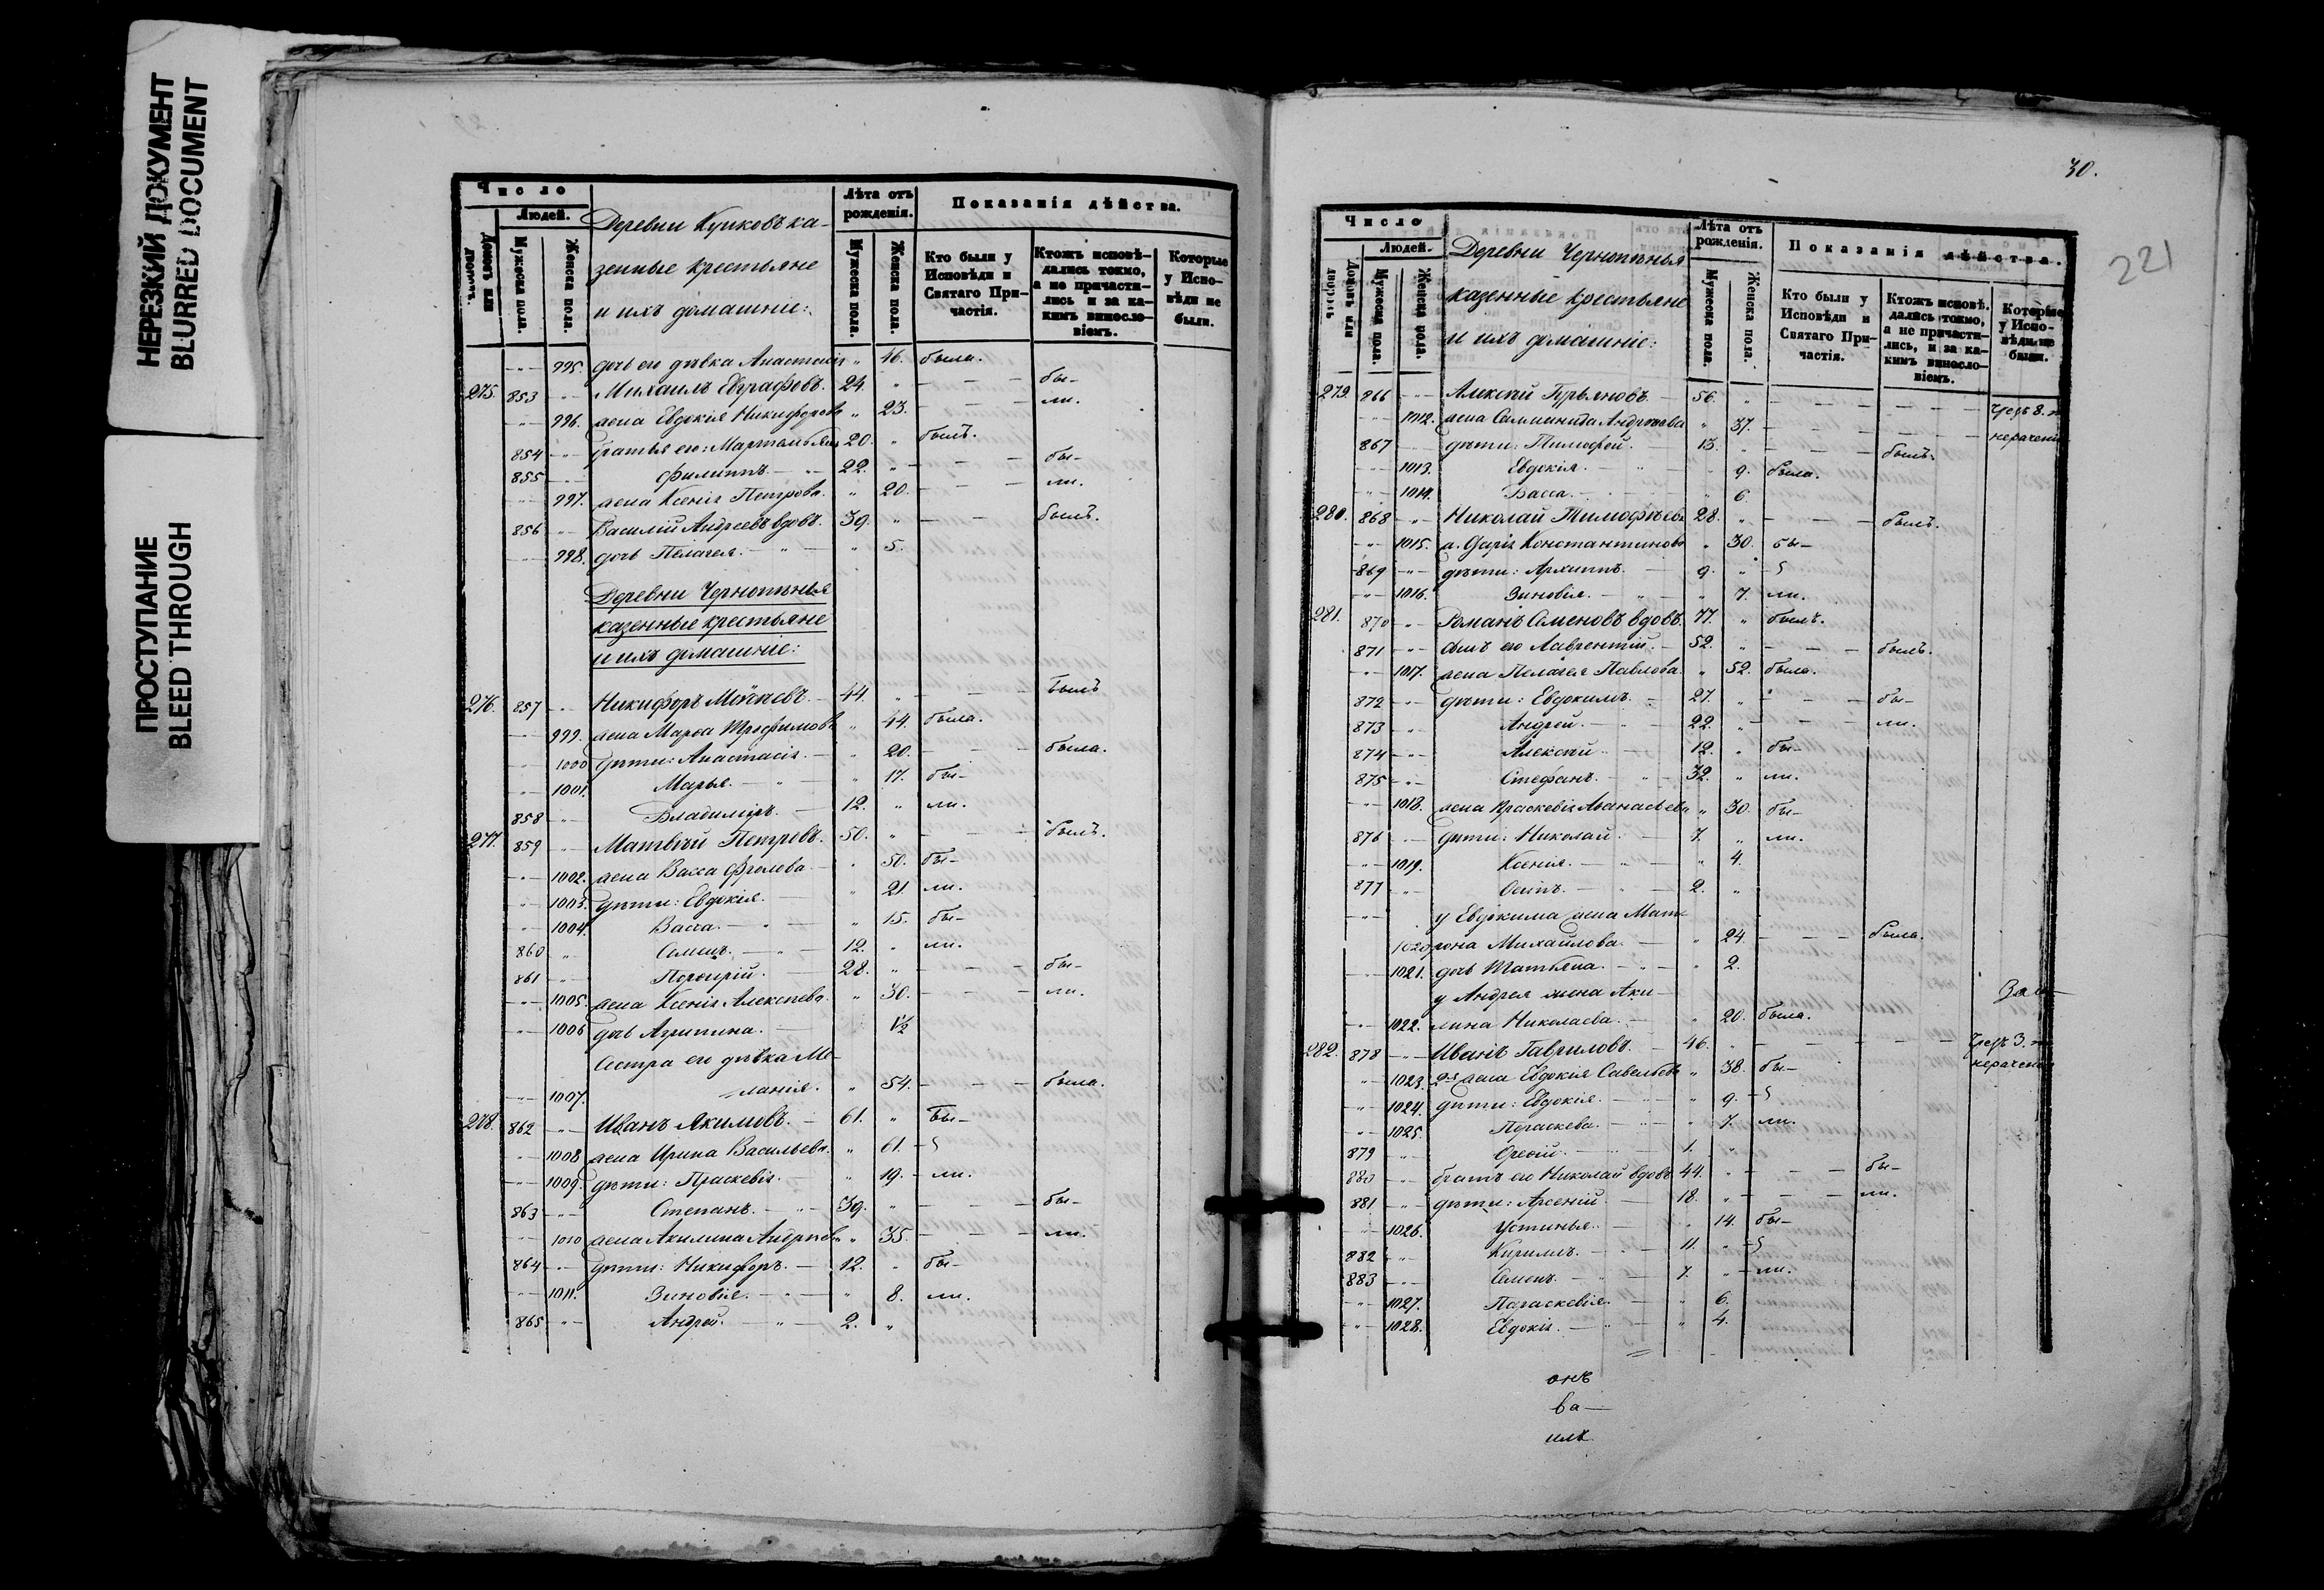 НЕРЕЗКИЙ ДОКУМЕНТ
BLURRED DOCUMENT
ПРОСТУПАНИЕ
BLEED THROUGH
Число
Людей.
Домовъ или дворовъ.
Мужеска пола.
Женска пола.
Деревни Куиковъ ка-
зенные крестьяне
и ихъ домашніе:
Лѣта отъ рожденія.
Мужеска пола.
Женска пола.
Показанія дѣйства.
Кто были у Исповѣди и Святаго При-частія.
Ктожъ исповѣ-дались токмо, а не причасти-лись и за ка-кимъ виносло-віемъ.
Которые у Испо-вѣди не были.
995. дочь его дѣвка Анастасія " 46. была.
275. 853 Михаилъ Евграфовъ. 24. " бы-
996. жена Евдокія Никифорова " 23. ли.
854 братья его: Мартемьянъ 20. " былъ.
855 Филиппъ. 22. " бы-
997. жена Ксенія Петрова. " 20. ли.
856 Василій Андреевъ вдовъ. 39. " былъ.
998. дочь Пелагея. " 5.
Деревни Чернотѣнья
казенные крестьяне
и ихъ домашніе:
276. 857 Никифоръ 44. " былъ
999. жена Марѳа Трофимова " 44. была.
1000 дѣти: Анастасія. " 20. была.
1001. Марья. " 17. бы-
858 Владиміръ. 12. " ли.
277. 859 Матвѣй Петровъ. 50. " былъ.
1002. жена Васса Фролова " 50. бы-
1003. дѣти: Евдокія. " 21. ли.
1004. Васса. " 15. бы-
860 Семенъ. 12. " ли.
861 Порфирій. 28. " бы-
1005. жена Ксенія Алексѣева. " 30. ли.
1006 дочь Агрипина. 1½
Сестра его дѣвка Ме-
1007. ланія. " 54. была.
278. 862 Иванъ Якимовъ. 61. " бы-
1008 жена Ирина Васильева. " 61.
1009. дѣти: Праскевія. " 19. ли.
863 Степанъ. 39. " бы-
1010 жена Акилина Андреева " 35. ли.
864 дѣти: Никифоръ. 12. " бы-
1011. Зиновія. " 8. ли.
865 Андрей. 2. "
30.
221
Число
Людей.
Домовъ или дворовъ.
Мужеска пола.
Женска пола.
Деревни Чернотѣнья
казенные крестьяне
и ихъ домашніе:
Лѣта отъ рожденія.
Мужеска пола.
Женска пола.
Показанія дѣйства.
Кто были у Исповѣди и Святаго При-частія.
Ктожъ исповѣ-дались токмо, а не причасти-лись, и за ка-кимъ виносло-віемъ.
Которые у Испо-вѣди не были.
279. 866 Алексѣй Гурьяновъ. 56. "
1012. жена " 37.
867 дѣти: Тимофей. 13. " былъ.
1013. Евдокія. " 9. была.
1014. Васса. " 6.
280. 868 Николай Тимофѣевъ 28. " былъ.
1015. ж. Дарія Константинова " 30. бы-
869 дѣти: Архиппъ. 9. "
1016. Зиновія. " 7. ли.
281. 870 Романъ Семеновъ вдовъ. 77. " былъ.
871 сынъ его Лаврентій. 52. " былъ.
1017. жена Пелагея Павлова. " 52. была.
872 дѣти: Евдокимъ. 27. " бы-
873 Андрей. 22. " ли.
874 Алексѣй. 12. " бы-
875 Стефанъ. 32. " ли.
1018. жена Праскевія Аѳанасьева " 30. бы-
876 дѣти: Николай. 7. " ли.
1019. Ксенія. " 4.
877 Осипъ. 2. "
у Евдокима жена Мат-
1020 рона Михайлова. " 24. была.
1021. дочь Татьяна. " 2.
у Андрея жена Аку-
1022. лина Николаева. " 20. была.
282. 878 Иванъ Гавриловъ. 46. "
1023. 2я жена Евдокія Савельева " 38. бы-
1024. дѣти: Евдокія. " 9.
1025. Параскева. " 7. ли.
879 1. "
880 братъ его Николай вдовъ 44. " бы-
881. дѣти: Арсеній. 18. " ли.
1026. Устинья. " 14. бы-
882 Кириллъ. 11. "
883 Семенъ. 7. " ли.
1027. Параскевія. " 6.
1028. Евдокія. " 4.
онъ
ва-
илъ